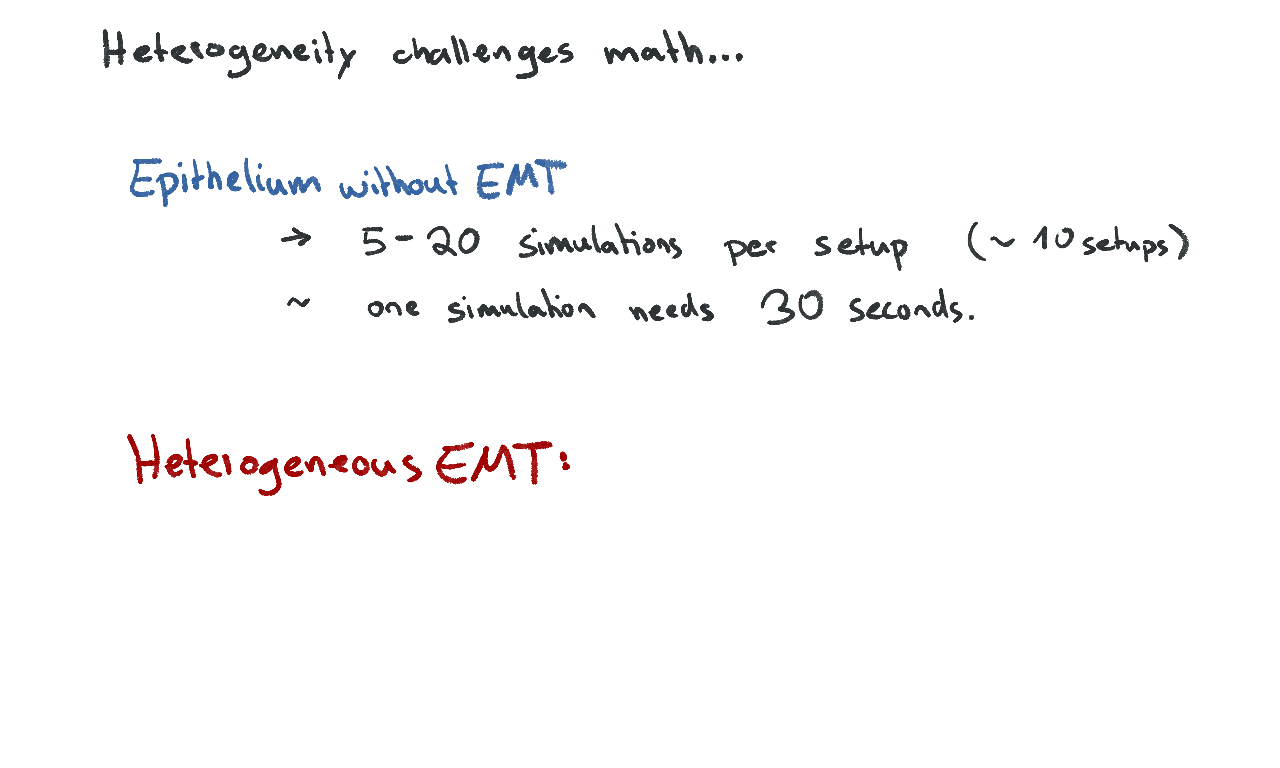 Heterogeneity challenges math...
Epithelium without EMT
→ 5-20 simulations per setup (~ 10 setups)
~ one simulation needs 30 seconds.
Heterogeneous EMT: